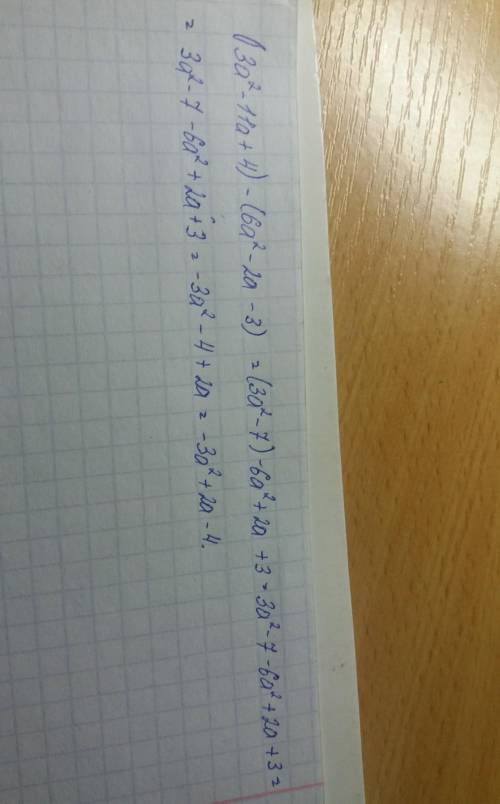 (3a² - 11a + 4) - (6a² - 2a - 3) = (3a² - 7) - 6a² + 2a + 3 = 3a² - 7 - 6a² + 2a + 3 =
= 3a² - 7 - 6a² + 2a + 3 = -3a² - 4 + 2a = -3a² + 2a - 4.